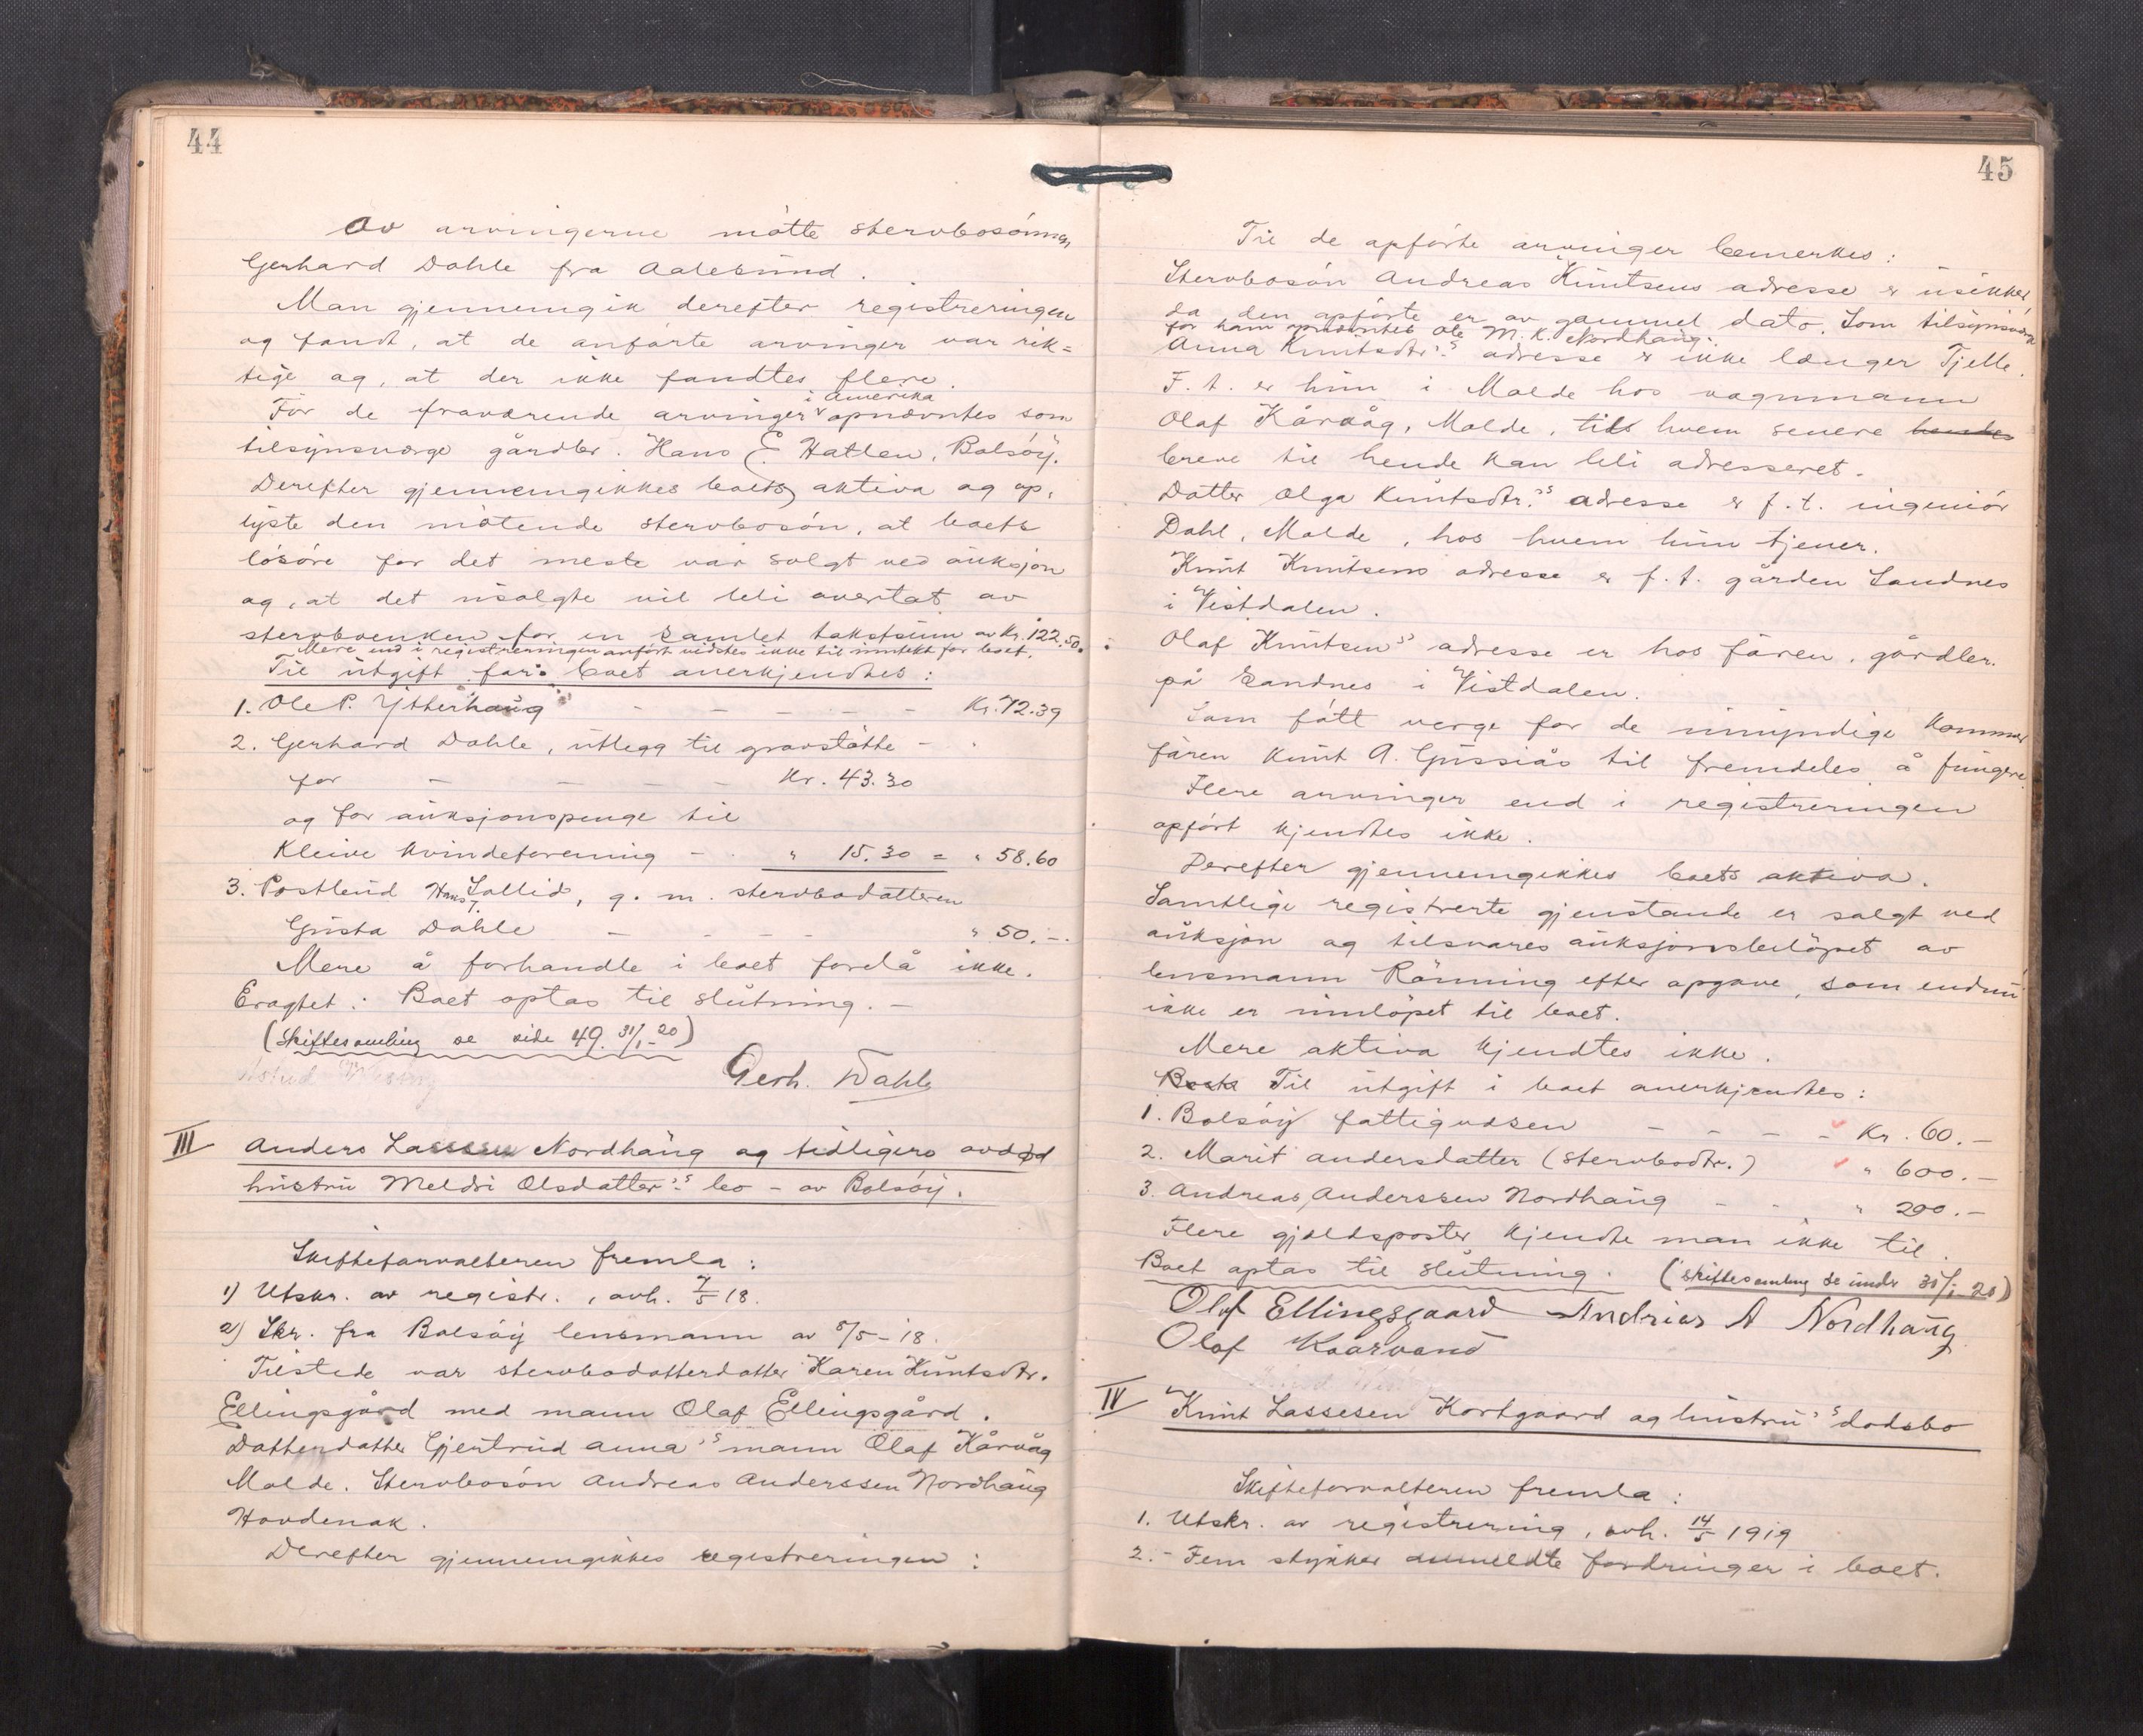 44
Av arvingerne møtte stervbosønnen
Gerhard Dahle fra Aalesund.
Man gjennemgik derefter registreringen
og fandt, at de anførte arvinger var rik=
tige og, at der ikke fandtes flere.
i Amerika
For de fraværende arvinger opnævntes som
tilsynsværge gårdbr. Hans E. Hatlen, Bolsøy.
Derefter gjennemgikkes boets aktiva og op,
lyste den møtende stervbosøn, at boets
løsøre for det meste var solgt ved auksjon
og, at det usolgte vil bli overtat av
stervboenken for en samlet takstsum av Kr. 122.50.
Mere end i registreringen anført vidstes ikke til inntekt for boet.
Til utgift for boet anerkjendtes:
1. Ole P. Ytterhaug - - - - - Kr. 72.39
2. Gerhard Dahle, utlegg til gravstøtte -
for - - - - Kr. 43.30
og for auksjonspenge til
Kleive Kvindeforening - " 15.30 = " 58.60
3. Postbud Hans T. Sollid, g. m. stervbodatteren
Gusta Dahle - - - - " 50.-
Mere å forhandle i boet forelå ikke.
Eragtet: Boet optas til slutning. -
(Skiftesamling se side 49. 31/1-20)
Gerh. Dahle
III Anders Lassesen Nordhaug og tidligere avdød
hustru Meldri Olsdatter's bo - av Bolsøy.
Skifteforvalteren fremla:
1) Utskr. av registr., avh. 7/5 18.
2) Skr. fra Bolsøy lensmann av 8/5-18.
Tilstede var stervbodatterdatter Karen Kuntsdtr.
Ellingsgård med mann Olaf Ellingsgård.
Datterdatter Gjertrud Anna's mann Olaf Kårvåg
Molde. Stervbosøn Andreas Anderssen Nordhaug
Hovdenak.
Derefter gjennemgikkes registreringen:
45
Til de opførte arvinger bemerkes:
Stervbosøn Andreas Kuntsens adresse er usikker,
da den opførte er av gammel dato. Som tilsynsværge
for ham opnævntes Ole M. K. Nordhaug.
Anna Knutsdtr.'s adresse er ikke længer Tjelle.
F. t. er hun i Molde hos vognmann
Olaf Kårvåg, Molde, till hvem senere hendes
breve til hende kan bli adresseret.
Datter Olga Kuntsdtr.'s adresse er f. t. ingeniør
Dahl, Molde, hos hvem hun tjener.
Knut Knutsens adresse er f. t. gården Sandnes
i Vistdalen.
Olaf Knutsen's adresse er hos faren, gårdbr.
på Sandnes i Vistdalen.
Som født verge for de umyndige kommer
faren Knut A. Gussiås til fremdeles å fungere.
Flere arvinger end i registreringen
opført kjendtes ikke.
Derefter gjennemgikkes boets aktiva.
Samtlige registrerte gjenstande er solgt ved
auksjon og tilsvares auksjonsbeløpet av
lensmann Rønning efter opgave, som endnu
ikke er innløpet til boet.
Mere aktiva kjendtes ikke.
Til utgift i boet anerkjendtes:
1. Bolsøy fattigvesen - - - - Kr. 60.-
2. Marit Andersdatter (stervbodtr.) " 600.-
3. Andreas Anderssen Nordhaug - - " 200.-
Flere gjeldsposter kjendte man ikke til.
Boet optas til slutning. (Skiftesamling se under 30/1-20)
Oluf Ellingsgaard Andrias A Nordhaug
Olaf Kaarvand
IV Knut Lassesen Kortgaard og hustru's dødsbo
Skifteforvalteren fremla:
1. Utskr. av registrering, avh. 14/5 1919
2. - Fem stykker anmeldte fordringer i boet.